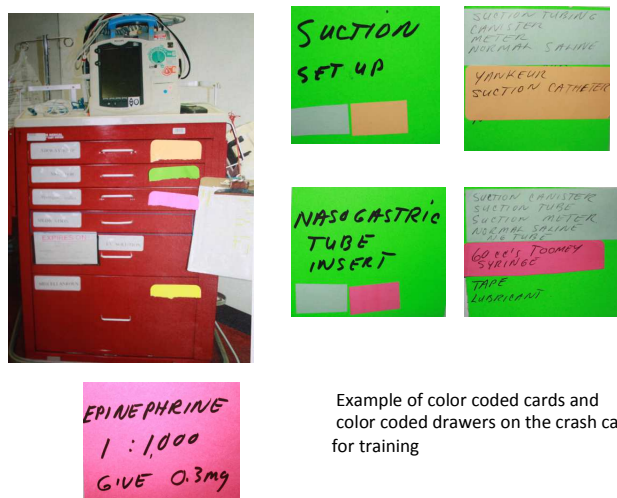 SUCTION
SET UP
SUCTION TUBING
CANISTER
METER
NORMAL SALINE
YANKEUR
SUCTION CATHETER
NASOGASTRIC
TUBE
INSERT
SUCTION CANISTER
SUCTION TUBE
SUCTION METER
NORMAL SALINE
NG TUBE
60 cc's TOOMEY
SYRINGE
TAPE
LUBRICANT
EPINEPHRINE
1 : 1,000
GIVE 0.3mg
Example of color coded cards and
color coded drawers on the crash ca
for training